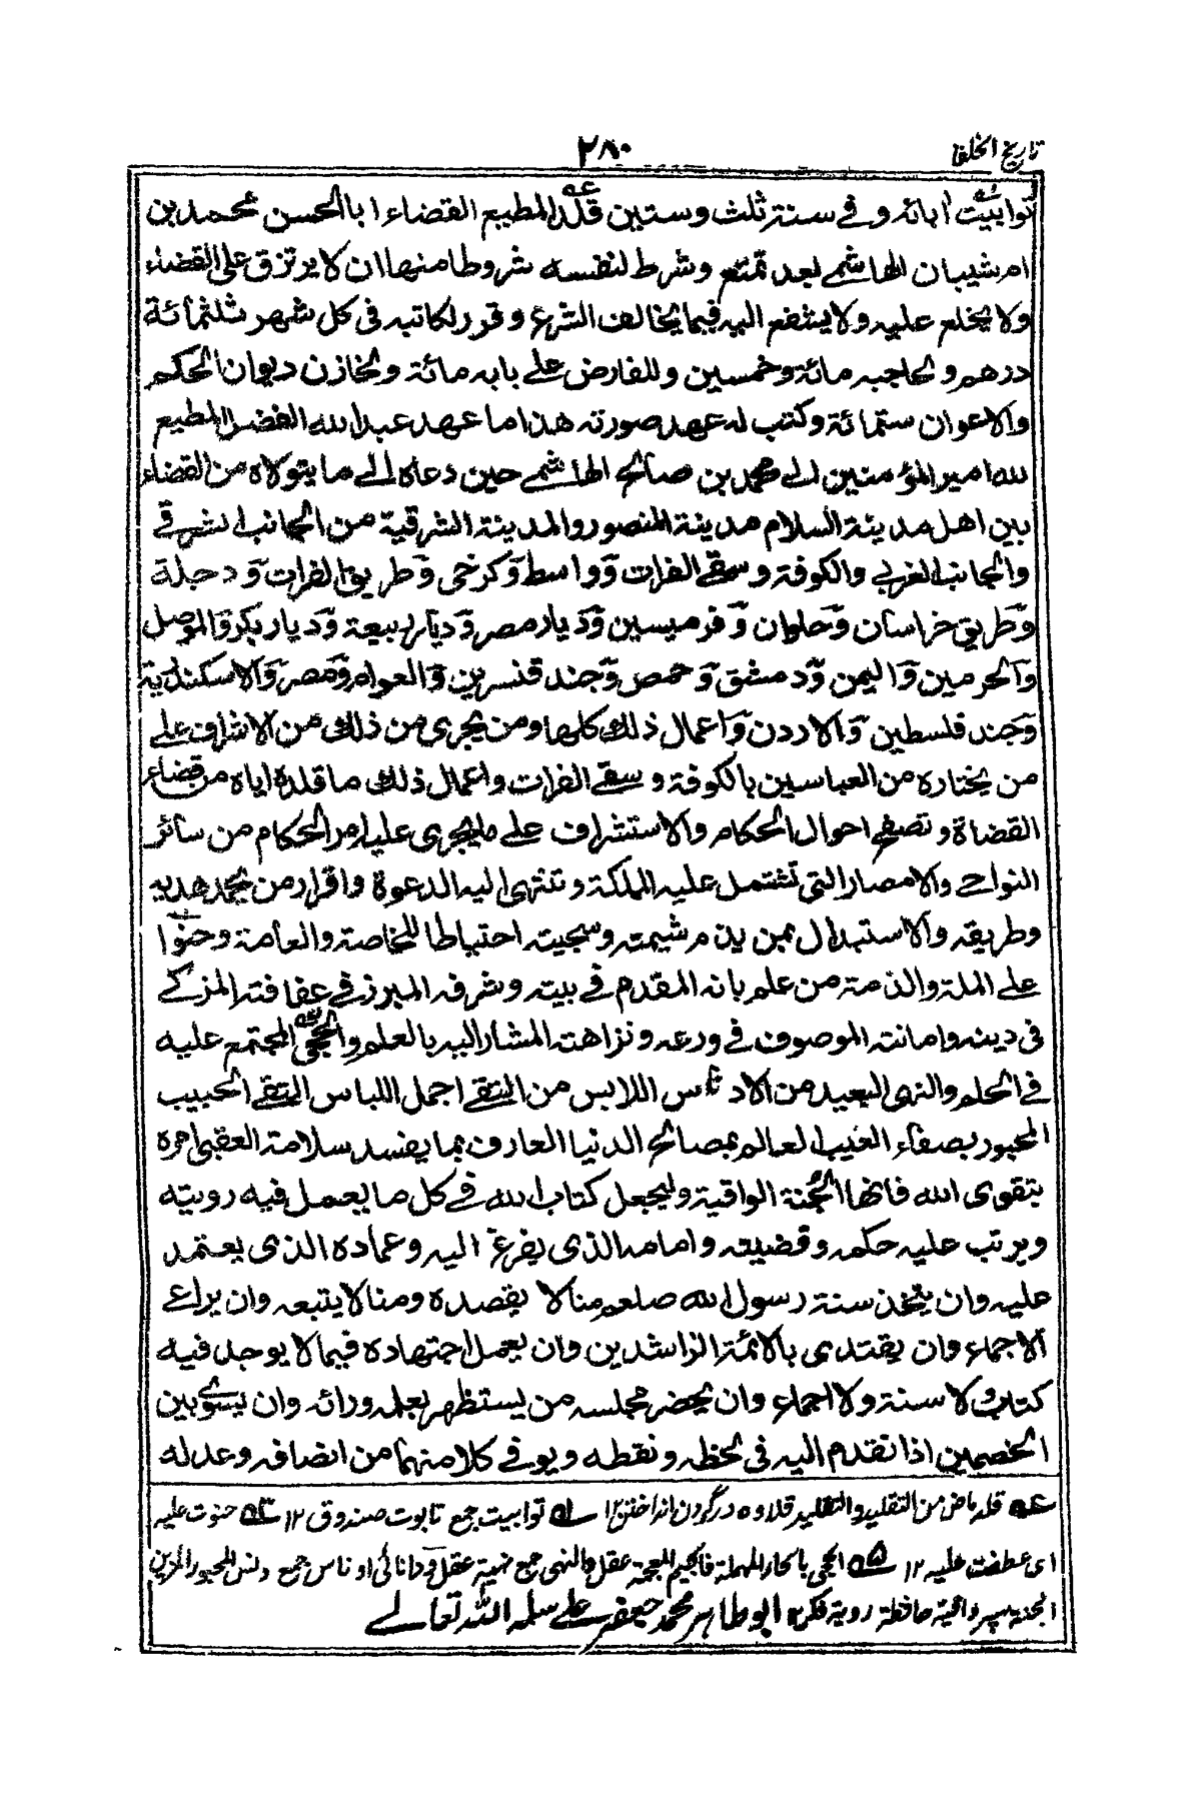 تاريخ الخلفا
٢٨٠
توابيت أبائه و في سنة ثلث وستين قلد المطيع القضاء ابا الحسن محمد بن
ام شيبان الهاشمي بعد تمنع وشرط لنفسه شروطا منها ان لا يرتزق على القضاء
ولا يخلع عليه ولا يشفع اليه فيما يخالف الشرع وقرر لكاتبه في كل شهر ثلثمائة
درهم ولحاجبه مائة وخمسين وللفارض على بابه مائة ولخازن ديوان الحكم
والاعوان ستمائة وكتب له عهد صورته هذا ما عهد عبد الله الفضل المطيع
لله امير المؤمنين الى محمد بن صالح الهاشمي حين دعاه الى ما يتولاه من القضاء
بين اهل مدينة السلام مدينة المنصور والمدينة الشرقية من الجانب الشرقي
والجانب الغربي والكوفة وسقي الفرات و واسط و كرخى و طريق الفرات و دجلة
و طريق خراسان و حلوان و قرميسين و ديار مضر و ديار ربيعة و ديار بكر و الموصل
و الحرمين و اليمن و دمشق و حمص و جند قنسرين و العواصم و مصر و الاسكندرية
و جند فلسطين و الاردن و اعمال ذلك كلها ومن يجرى من ذلك من الاشراف على
من يختاره من العباسيين بالكوفة و سقي الفرات واعمال ذلك ما قلده اياه من قضاء
القضاة و تصفح احوال الحكام والاستشراف على ما يجرى عليه امر الحكام من سائر
النواحي والامصار التي تشتمل عليه المملكة و تنتهى اليه الدعوة واقرار من يحمد هديه
وطريقه والاستبدال بمن يذم شيمته وسجيته احتياطا للخاصة والعامة وحنوا
على الملة والذمة من علم بانه المقدم في بيته و شرفه المبرز في عفافته المزكى
في دينه وامانته الموصوف في ورعه ونزاهته المشار اليه بالعلم والحجى المجتمع عليه
في الحلم والنهى البعيد من الادناس اللابس من التقى اجمل اللباس النقي الحبيب
المحبور بصفاء الغيب العالم بمصالح الدنيا العارف بما يفسد سلامة العقبى امره
بتقوى الله فانها الجنة الواقية وليجعل كتاب الله في كل ما يعمل فيه رويته
ويرتب عليه حكمه وقضيته وامامه الذى يفزع اليه وعماده الذى يعتمد
عليه وان يتخذ سنة رسول الله صلعم منالا يقصده ومنالا يتبعه وان يراعى
الاجماع وان يقتدى بالائمة الراشدين وان يعمل اجتهاده فيما لا يوجد فيه
كتاب ولا سنة ولا اجماع وان يحضر مجلسه من يستظهر بعلمه ورائه وان يسوى بين
الخصمين اذا تقدم اليه في لحظه ونقطه ويوفي كلا منهما من انصافه وعدله
قلد ماض من التقليد والتقليد قلاوه در گردن انداختن ١٢ توابيت جمع تابوت صندوق ١٢ حنوت عليه
اى عطفت عليه ١٢ الحجى بالحاء المهملة فالجيم المعجمة عقل والنهى جمع نهية عقل و دانائى ادناس جمع دنس المحبور المزين
الجنة سپر واقية حافظة روية فكره ابو طاهر محمد جعفر على سلمه الله تعالى